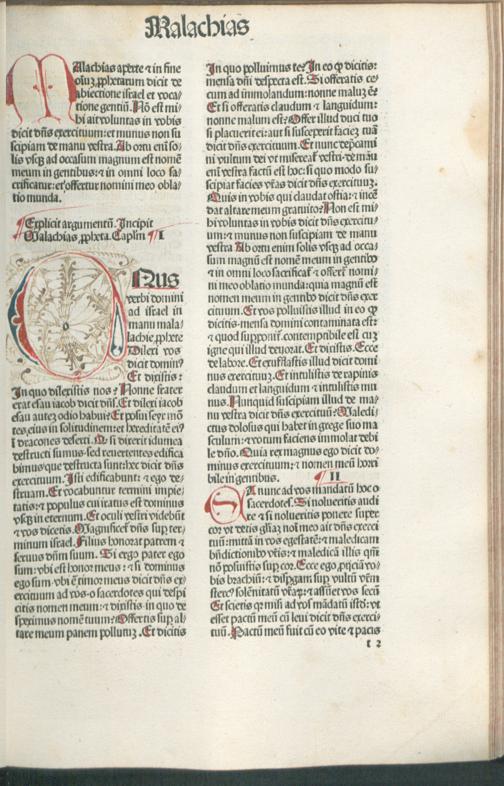 Malachias
Malachias aperte ⁊ in fine
oīuz ꝓphetarum dicit de
abiectione israel et voca-
tione gentiū. Nō est mi-
hi ait voluntas in vobis
dicit dn̄s exercituum: et munus non su
scipiam de manu vestra. Ab ortu em̄ so-
lis vsqꝫ ad occasum magnum est nomē
meum in gentibus: ⁊ in omni loco sa-
crificatur: et offertur nomini meo obla-
tio munda.
Explicit argumentū. Incipit
Malachias ꝓpheta. Caplm I
ONus
verbi domini
ad israel in
manu mala-
chie ꝓphete
Dilexi vos
dicit domin9
Et dixistis:
In quo dilexistis nos? Nonne frater
erat esau iacob dicit dn̄s. Et dilexi iacob
esau autez odio habui: Et posui seyr mō
tes eius in solitudinem: et hereditatē ei9
ī dracones deserti. Q si dixerit idumea
destructi sumus: sed reuertentes edifica
bimus que destructa sunt: hec dicit dn̄s
exercituum. Isti edificabunt: ⁊ ego de-
struam. Et vocabuntur termini impie-
tatis: ⁊ populus cui iratus est dominus
vsqꝫ in eternum. Et oculi vestri videbūt
⁊ vos dicetis. Magnificet̄ dn̄s suꝑ ter-
minum israel. Filius honorat patrem ⁊
seruus dn̄m suum. Si ergo pater ego
sum: vbi est honor meus: ⁊ si dominus
ego sum: vbi ē timor meus dicit dn̄s ex-
ercituum ad vos o sacerdotes qui despi
citis nomen meum: ⁊ dixistis in quo de
speximus nomē tuum? Offertis suꝑ al-
tare meum panem pollutuꝫ. Et dicitis
In quo polluimus te? In eo ꝙ dicitis:
mensa dn̄i despecta est. Si offeratis ce-
cum ad immolandum: nonne maluꝫ ē?
Et si offeratis claudum ⁊ languidum:
nonne malum est? Offer illud duci tuo
si placuerit ei: aut si susceperit faciez tuā
dicit dn̄s exercituum. Et nunc dep̄cami
ni vultum dei vt misereat̄ vestri: de māu
em̄ vestra factū est hoc: si quo modo su-
scipiat facies vr̄as dicit dn̄s exercituuꝫ.
Quis in vobis qui claudat ostia: ⁊ incē
dat altare meum gratuito? Non est mi-
hi voluntas in vobis dicit dn̄s exercitu-
um: ⁊ munus non suscipiam de manu
vestra Ab ortu enim solis vsqꝫ ad occa-
sum magnū est nomē meum in gentibꝰ
⁊ in omni loco sacrificat̄ ⁊ offert̄ nomi-
ni meo oblatio munda: quia magnū est
nomen meum in gentibꝰ dicit dn̄s exer
cituum. Et vos polluistis illud in eo ꝙ
dicitis: mensa domini contaminata est:
⁊ quod supponit̄ contemptibile est cuꝫ
igne qui illud deuorat. Et dixistis. Ecce
de labore. Et exufflastis illud dicit domi
nus exercituum. Et intulistis de rapinis
claudum et languidum ⁊ intulistis mu
nus. Nunquid suscipiam illud de ma-
nu vestra dicit dn̄s exercituū? Maledi-
ctus dolosus qui habet in grege suo ma
sculum: ⁊ votum faciens immolat debi
le dn̄o. Quia rex magnus ego dicit do-
minus exercituum: ⁊ nomen meū horri
bile in gentibus. II
Et nunc ad vos mandatū hoc o
sacerdotes. Si nolueritis audi
re ⁊ si nolueritis ponere super
cor vt detis gl̄iaꝫ noī meo ait dn̄s exerci
tuū: mittā in vos egestatē: ⁊ maledicam
bn̄dictionibꝰ vr̄is: ⁊ maledicā illis qm̄
nō posuistis suꝑ cor. Ecce ego ꝓijciā vo-
bis brachiū: ⁊ disꝑgam suꝑ vultū vr̄m
sterc9 solēnitatū vr̄aꝝ: ⁊ assūet vos secū
Et scietis qꝛ misi ad vos mādatū istd: vt
esset pactū meū cū leui dicit dn̄s exerci-
tuū. Pactū meū fuit cū eo vite ⁊ pacis
t 2